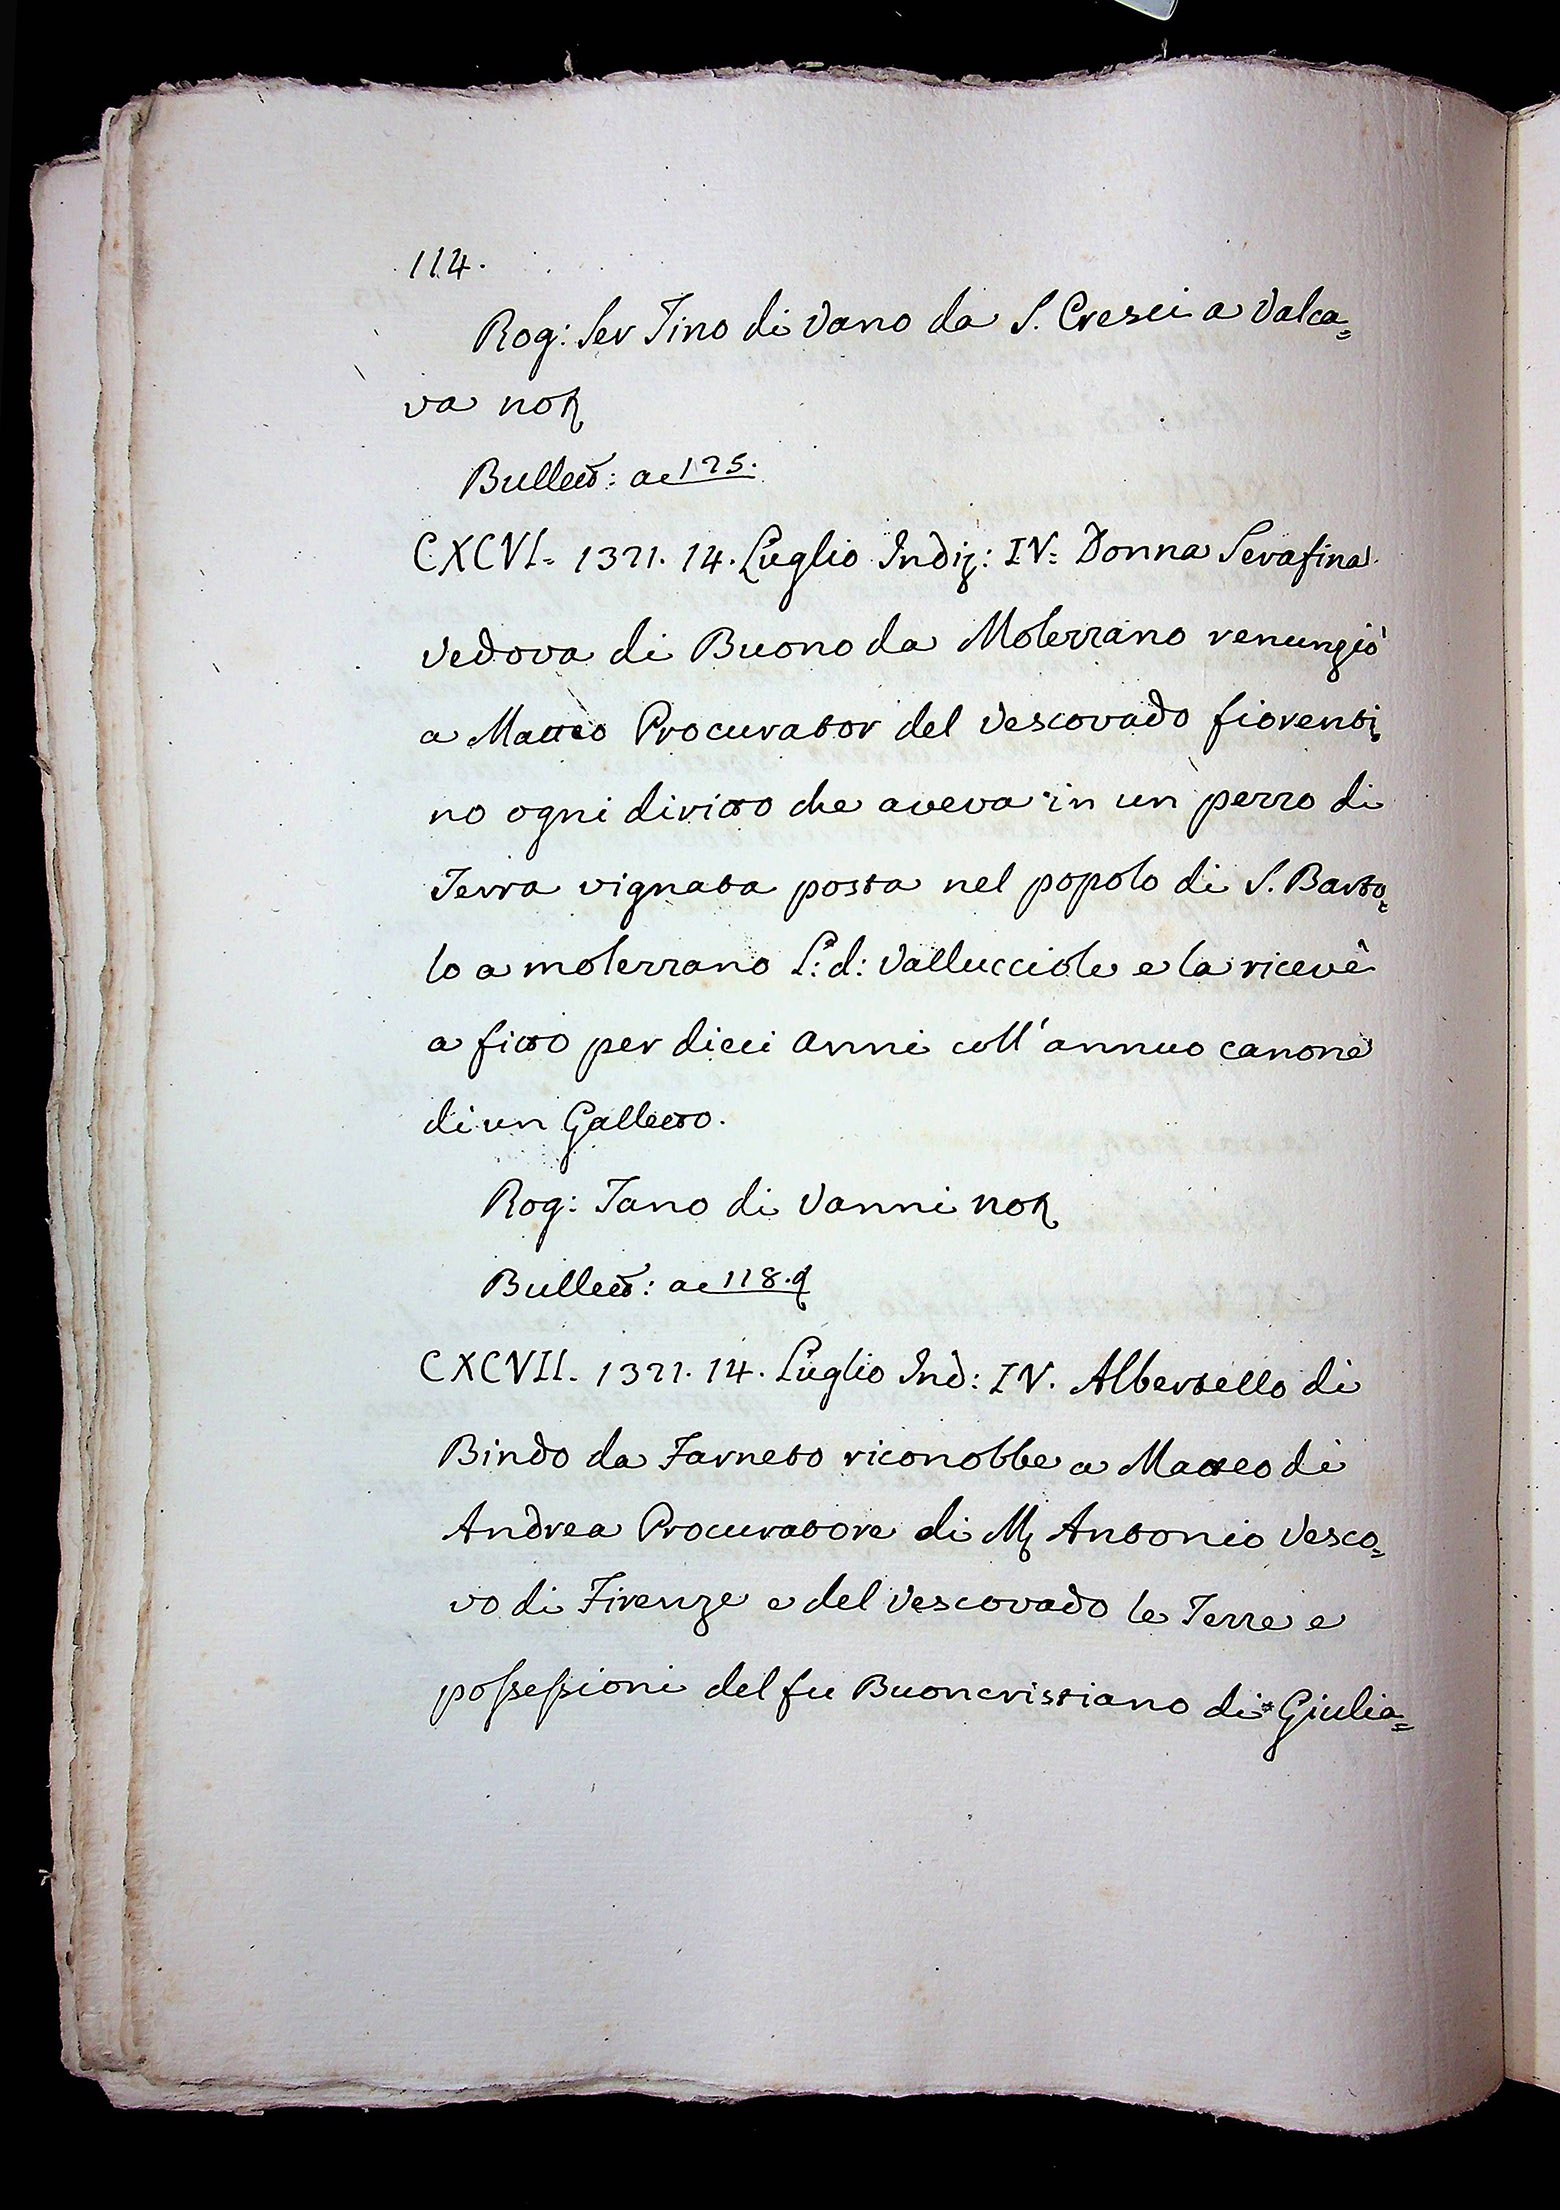 114.
Rog: Ser Tino di Vano da S. Cresci a Valca=
va not
Bullett: ac 125.
CXCVI. 1321. 14. Luglio Indiz: IV. Donna Serafina
vedova di Buono da Molezzano renunziò
a Matteo Procurator del Vescovado fiorenti=
no ogni diritto che aveva in un pezzo di
Terra vignata posta nel popolo di S. Barto=
lo a molezzano l: d: Vallucciole e la ricevè
a fitto per dieci anni coll' annuo canone
di un Galletto.
Rog: Tano di Vanni not
Bullett: ac 118.
CXCVII. 1321. 14. Luglio Ind: IV. Albertello di
Bindo da Farneto riconobbe a Matteo di
Andrea Procuratore di M Antonio Vesco=
vo di Firenze e del Vescovado le Terre e
possessioni del fu Buoncristiano di Giulia=